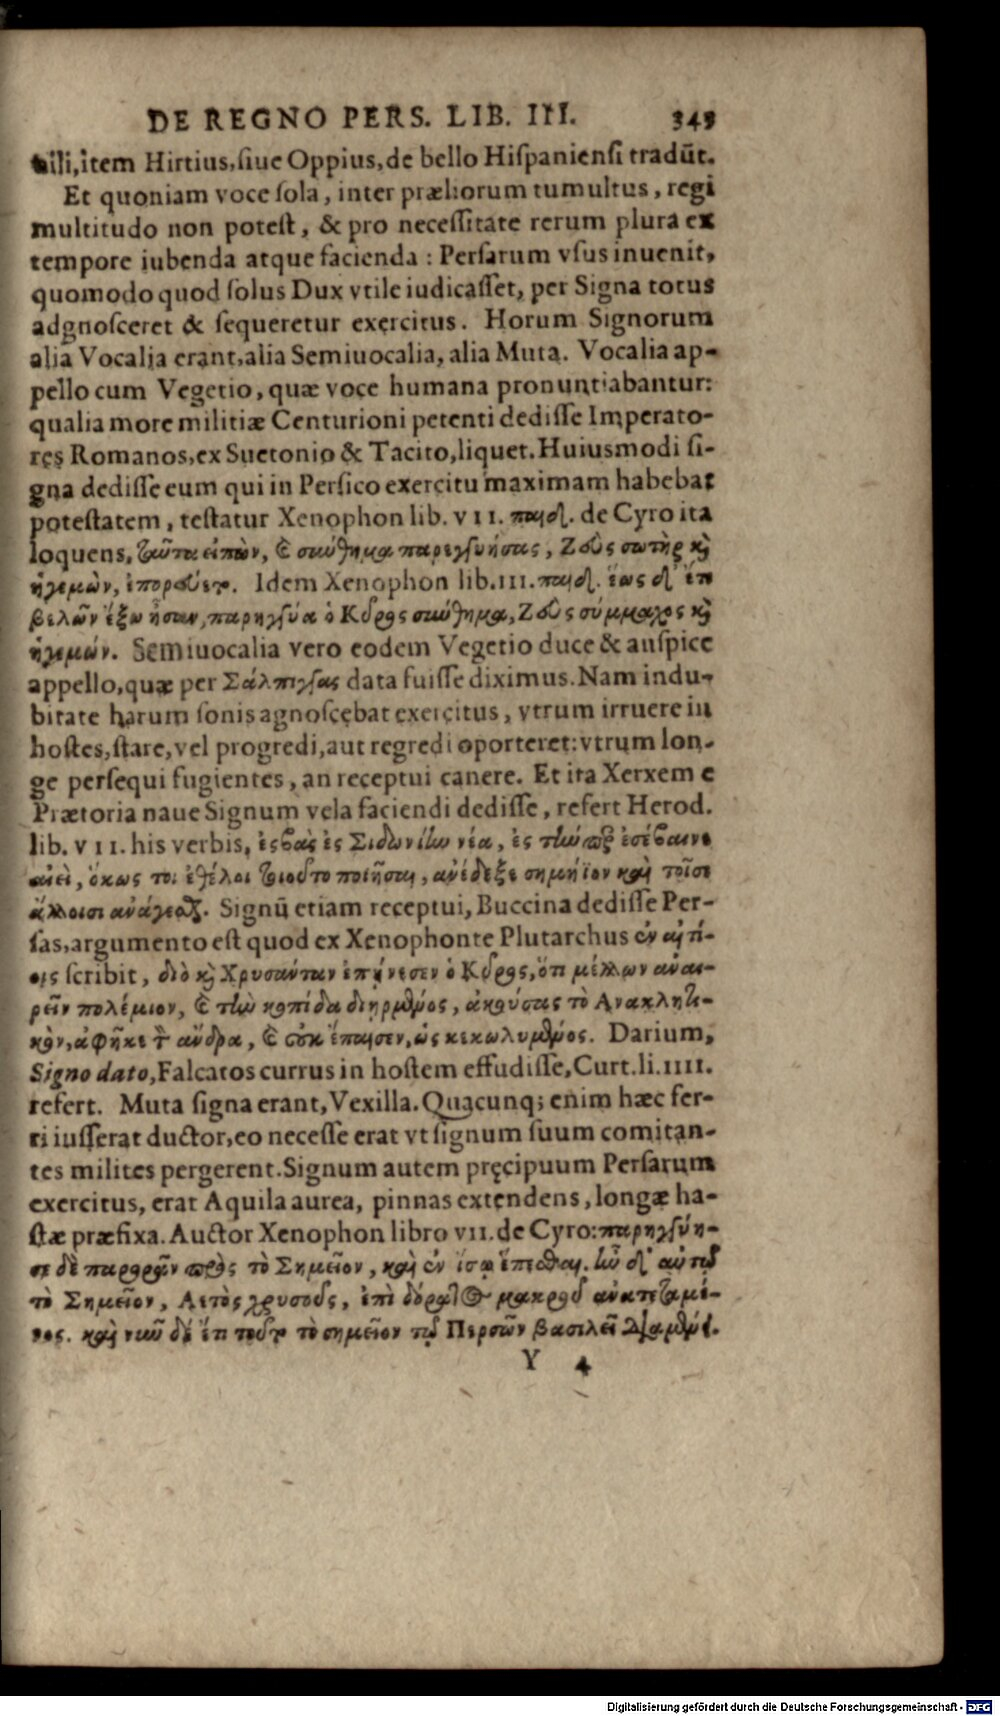 DE REGNO PERS. LIB. III. 343
uili,item Hirtius,siue Oppius,de bello Hispaniensi tradūt.
Et quoniam voce sola, inter præliorum tumultus, regi
multitudo non potest, & pro necessitate rerum plura ex
tempore iubenda atque facienda : Persarum vsus inuenit,
quomodo quod solus Dux vtile iudicasset, per Signa totus
adgnosceret & sequeretur exercitus. Horum Signorum
alia Vocalia erant,alia Semiuocalia, alia Muta. Vocalia ap-
pello cum Vegetio, quæ voce humana pronuntiabantur:
qualia more militiæ Centurioni petenti dedisse Imperato-
res Romanos,ex Suetonio & Tacito,liquet. Huiusmodi si-
gna dedisse eum qui in Persico exercitu maximam habebat
potestatem, testatur Xenophon lib. VII. παιδ. de Cyro ita
loquens, ταῦτα εἰπὼν, ϗ συύθημα παρεγγυήσας, Ζεὺς σωτὴρ ϗ
ἡγεμὼν, ἐπορεύετο. Idem Xenophon lib.III. παιδ. ἕως δ' ἔτι
βελῶν ἔξω ἦσαν, παρηγγύα ὁ Κῦρος σύνθημα, Ζεὺς σύμμαχος ϗ
ἡγεμών. Semiuocalia vero eodem Vegetio duce & auspice
appello,quæ per Σάλπιγγας data fuisse diximus. Nam indu-
bitate harum sonis agnoscebat exercitus, vtrum irruere in
hostes,stare,vel progredi,aut regredi oporteret:vtrum lon-
ge persequi fugientes, an receptui canere. Et ita Xerxem e
Prætoria naue Signum vela faciendi dedisse, refert Herod.
lib. VII. his verbis, ἐσβὰς ἐς Σιδωνίην νέα, ἐς τήν περ ἐσέβαινε
αἰεὶ, ὅκως τοι ἐθέλοι τοιοῦτο ποιῆσαι, ἀνέδεξε σημήϊον καὶ τοῖσι
ἄλλοισι ἀνάγεσθαι. Signū etiam receptui, Buccina dedisse Per-
sas,argumento est quod ex Xenophonte Plutarchus ἐν αἰτί-
οις scribit, διὸ ϗ Χρυσάνταν ἐπῄνεσεν ὁ Κῦρος,ὅτι μέλλων ἀναι-
ρεῖν πολέμιον, ϗ τὴν κοπίδα διηρμένος, ἀκούσας τὸ Ἀνακλητι-
κὸν,ἀφῆκε τὸν ἄνδρα, ϗ οὐκ ἔπαισεν,ὡς κεκωλυμένος. Darium,
Signo dato, Falcatos currus in hostem effudisse,Curt.li.IIII.
refert. Muta signa erant, Vexilla. Quacunq; enim hæc fer-
ri iusserat ductor,eo necesse erat vt signum suum comitan-
tes milites pergerent.Signum autem pręcipuum Persarum
exercitus, erat Aquila aurea, pinnas extendens, longæ ha-
stæ præfixa. Auctor Xenophon libro VII. de Cyro:παρηγγύη-
σε δὲ παρορᾶν πρὸς τὸ Σημεῖον, καὶ ἐν ἴσῳ ἕπεσθαι. ἦν δ' αὐτῷ
τὸ Σημεῖον, Αετὸς χρυσοῦς, ἐπὶ δόρατος μακροῦ ἀνατεταμέ-
νος. καὶ νῦν δὲ ἔτι τοῦτο τὸ σημεῖον τῷ Περσῶν βασιλεῖ διαμένει.
Y 4
Digitalisierung gefördert durch die Deutsche Forschungsgemeinschaft - DFG